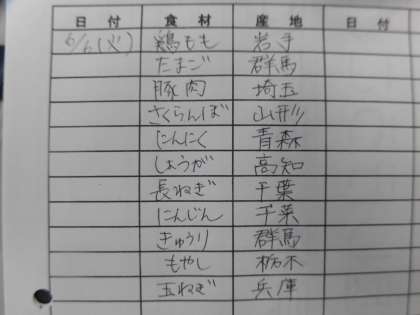 日付 食材 産地 日付
6/6(火) 鶏もも 岩手
たまご 群馬
豚肉 埼玉
さくらんぼ 山形
にんにく 青森
しょうが 高知
長ねぎ 千葉
にんじん 千葉
きゅうり 群馬
もやし 栃木
玉ねぎ 兵庫